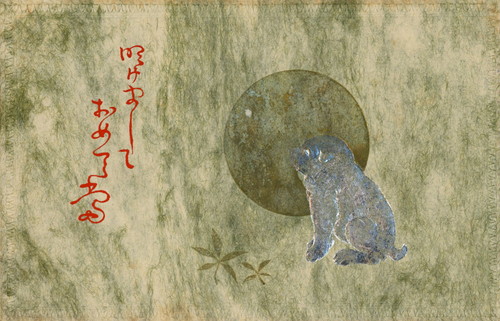 明けまして
おめで当